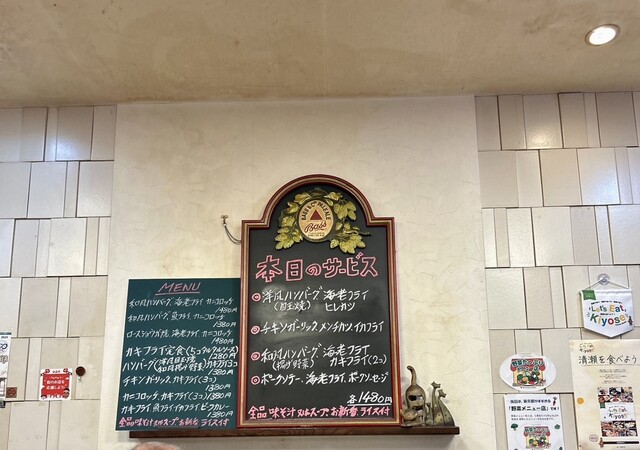 BASS & Co's PALE ALE
Bass
本日のサービス
洋風ハンバーグ 海老フライ
(目玉焼) ヒレカツ
チキンガーリック メンチカツ イカフライ
和風ハンバーグ 海老フライ
(揚げ野菜) カキフライ(2コ)
ポークソテー、海老フライ、ポークソーセージ
各1480円
全品 味そ汁又はスープ お新香 ライス付
MENU
和風ハンバーグ 海老フライ カニコロッケ
1480円
和風ハンバーグ 魚フライ カニコロッケ
1380円
ロースショウガ焼 海老フライ、カニコロッケ
1480円
カキフライ定食(5コタルタルソース)
1280円
ハンバーグ(洋風目玉焼 和風揚げ野菜)カキフライ3コ
1380円
チキンガーリック、カキフライ(3コ)
1380円
カニコロッケ、カキフライ(3コ) 1380円
カキフライ 魚フライ イカフライ ビーフカレー
1380円
全品味そ汁又はスープ お新香 ライス付
Let's Eat,
Kiyose!
清瀬を食べよう
Kiyose
「野菜メニュー店」です!